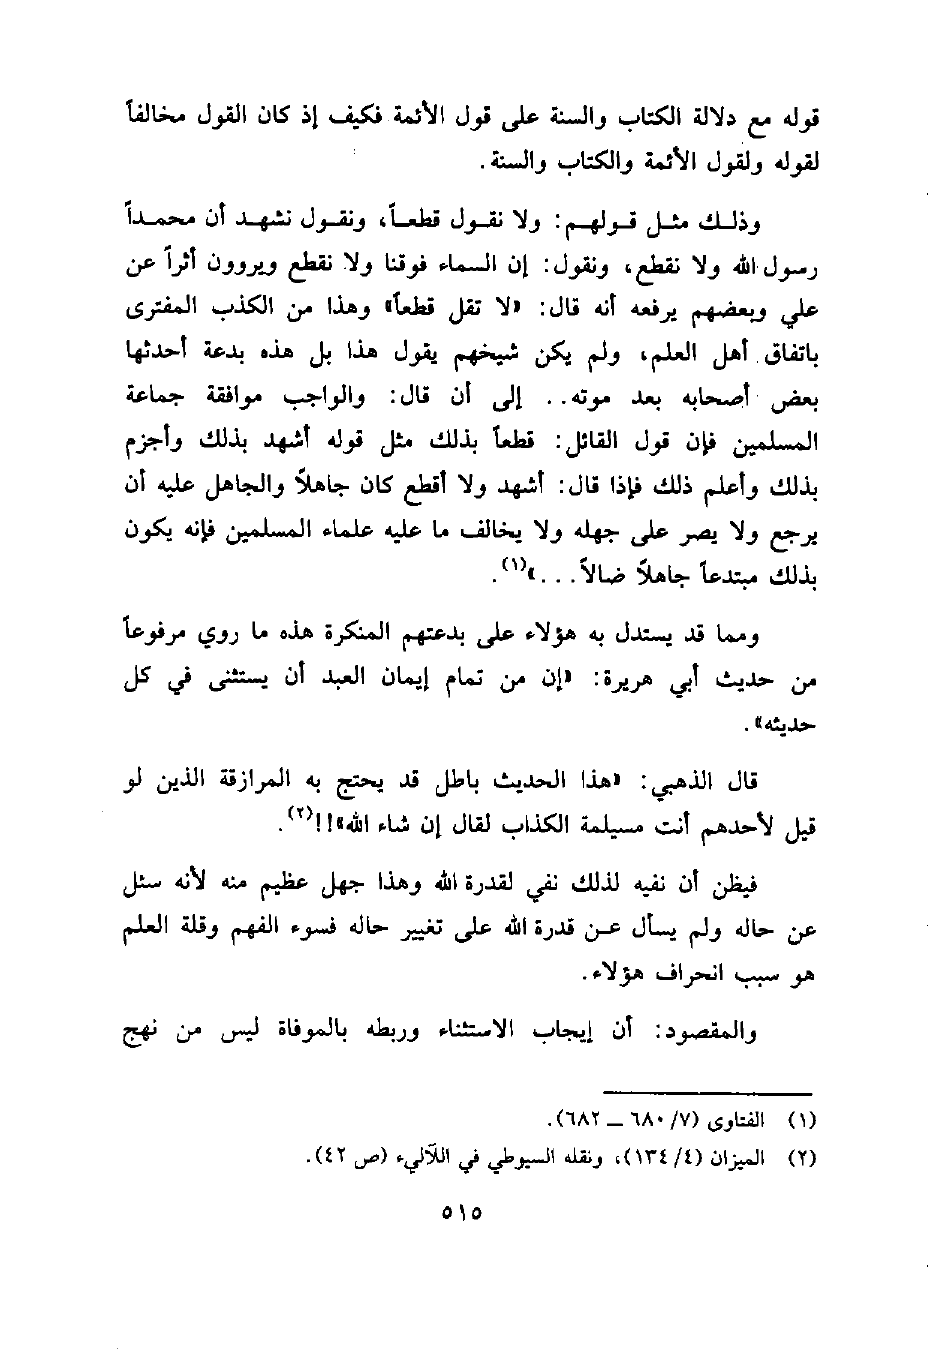 قوله مع دلالة الكتاب والسنة على قول الأئمة فكيف إذ كان القول مخالفاً
لقوله ولقول الأئمة والكتاب والسنة.
وذلك مثل قولهم: ولا نقول قطعاً، ونقول نشهد أن محمداً
رسول الله ولا نقطع، ونقول: إن السماء فوقنا ولا نقطع ويروون أثراً عن
علي وبعضهم يرفعه أنه قال: «لا تقل قطعاً» وهذا من الكذب المفترى
باتفاق أهل العلم، ولم يكن شيخهم يقول هذا بل هذه بدعة أحدثها
بعض أصحابه بعد موته.. إلى أن قال: والواجب موافقة جماعة
المسلمين فإن قول القائل: قطعاً بذلك مثل قوله أشهد بذلك وأجزم
بذلك وأعلم ذلك فإذا قال: أشهد ولا أقطع كان جاهلاً والجاهل عليه أن
يرجع ولا يصر على جهله ولا يخالف ما عليه علماء المسلمين فإنه يكون
بذلك مبتدعاً جاهلاً ضالاً...»(١).
ومما قد يستدل به هؤلاء على بدعتهم المنكرة هذه ما روي مرفوعاً
من حديث أبي هريرة: «إن من تمام إيمان العبد أن يستثنى في كل
حديثه».
قال الذهبي: «هذا الحديث باطل قد يحتج به المرازقة الذين لو
قيل لأحدهم أنت مسيلمة الكذاب لقال إن شاء الله»!!(٢).
فيظن أن نفيه لذلك نفي لقدرة الله وهذا جهل عظيم منه لأنه سئل
عن حاله ولم يسأل عن قدرة الله على تغيير حاله فسوء الفهم وقلة العلم
هو سبب انحراف هؤلاء.
والمقصود: أن إيجاب الاستثناء وربطه بالموفاة ليس من نهج
(١) الفتاوى (٧/ ٦٨٠ ــ ٦٨٢).
(٢) الميزان (٤/ ١٣٤)، ونقله السيوطي في اللآليء (ص ٤٢).
٥١٥